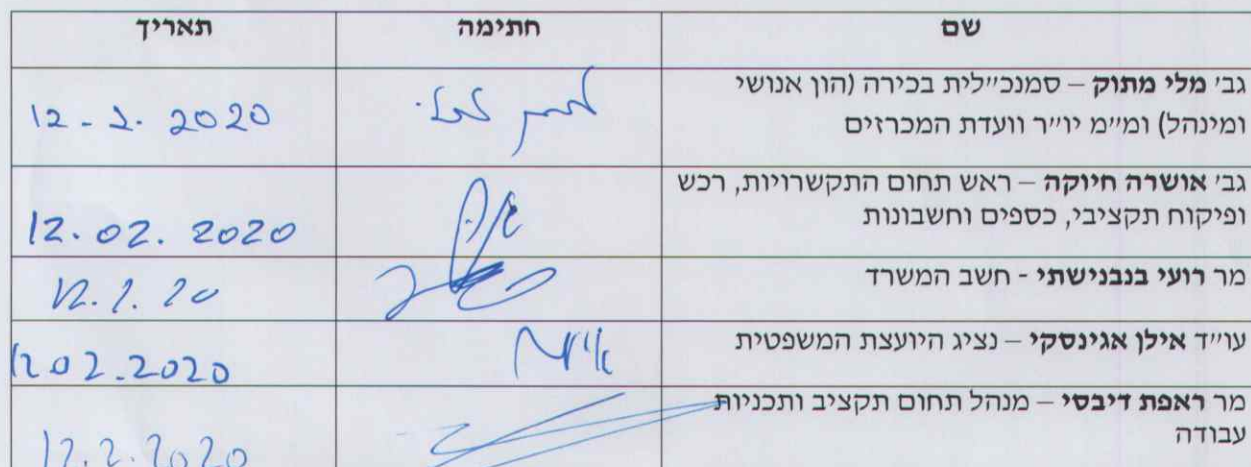 שם חתימה תאריך
גב' מלי מתוק – סמנכ"לית בכירה (הון אנושי
ומינהל) ומ"מ יו"ר וועדת המכרזים
12-2.2020
גב' אושרה חיוקה – ראש תחום התקשרויות, רכש
ופיקוח תקציבי, כספים וחשבונות
12.02.2020
מר רועי בנבנישתי - חשב המשרד
12.2.20
עו"ד אילן אגינסקי – נציג היועצת המשפטית
12.02.2020
מר ראפת דיבסי – מנהל תחום תקציב ותכניות
עבודה
12.2.2020